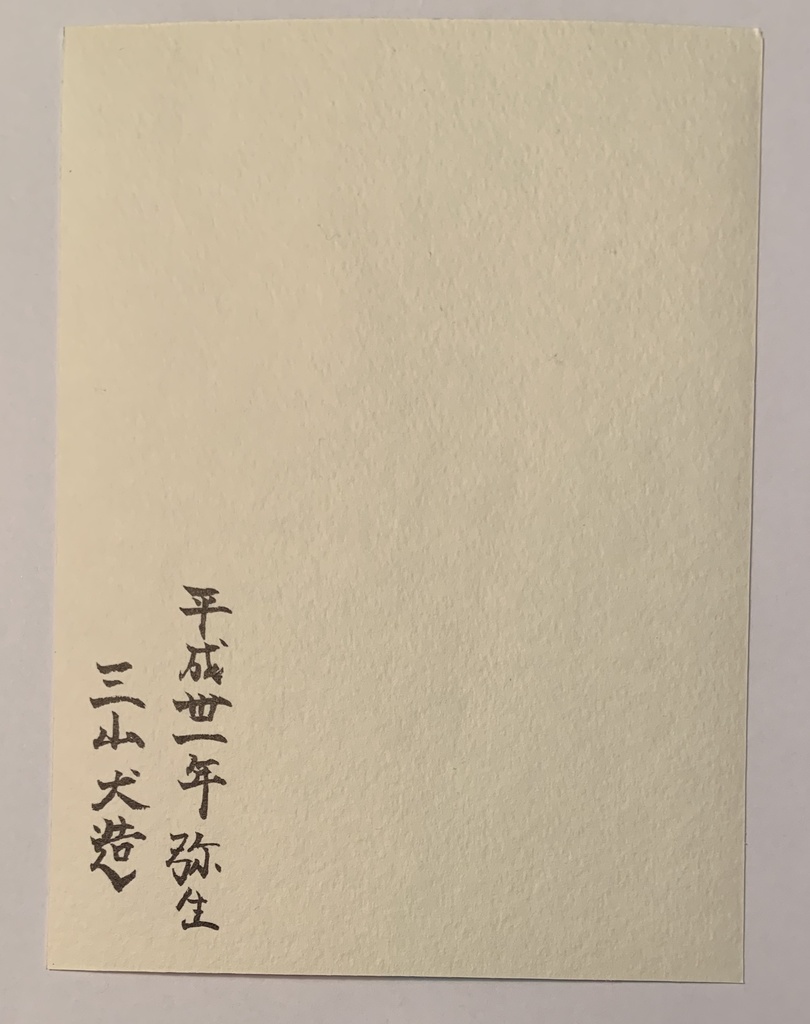 平成卅一年 弥生
三山犬造